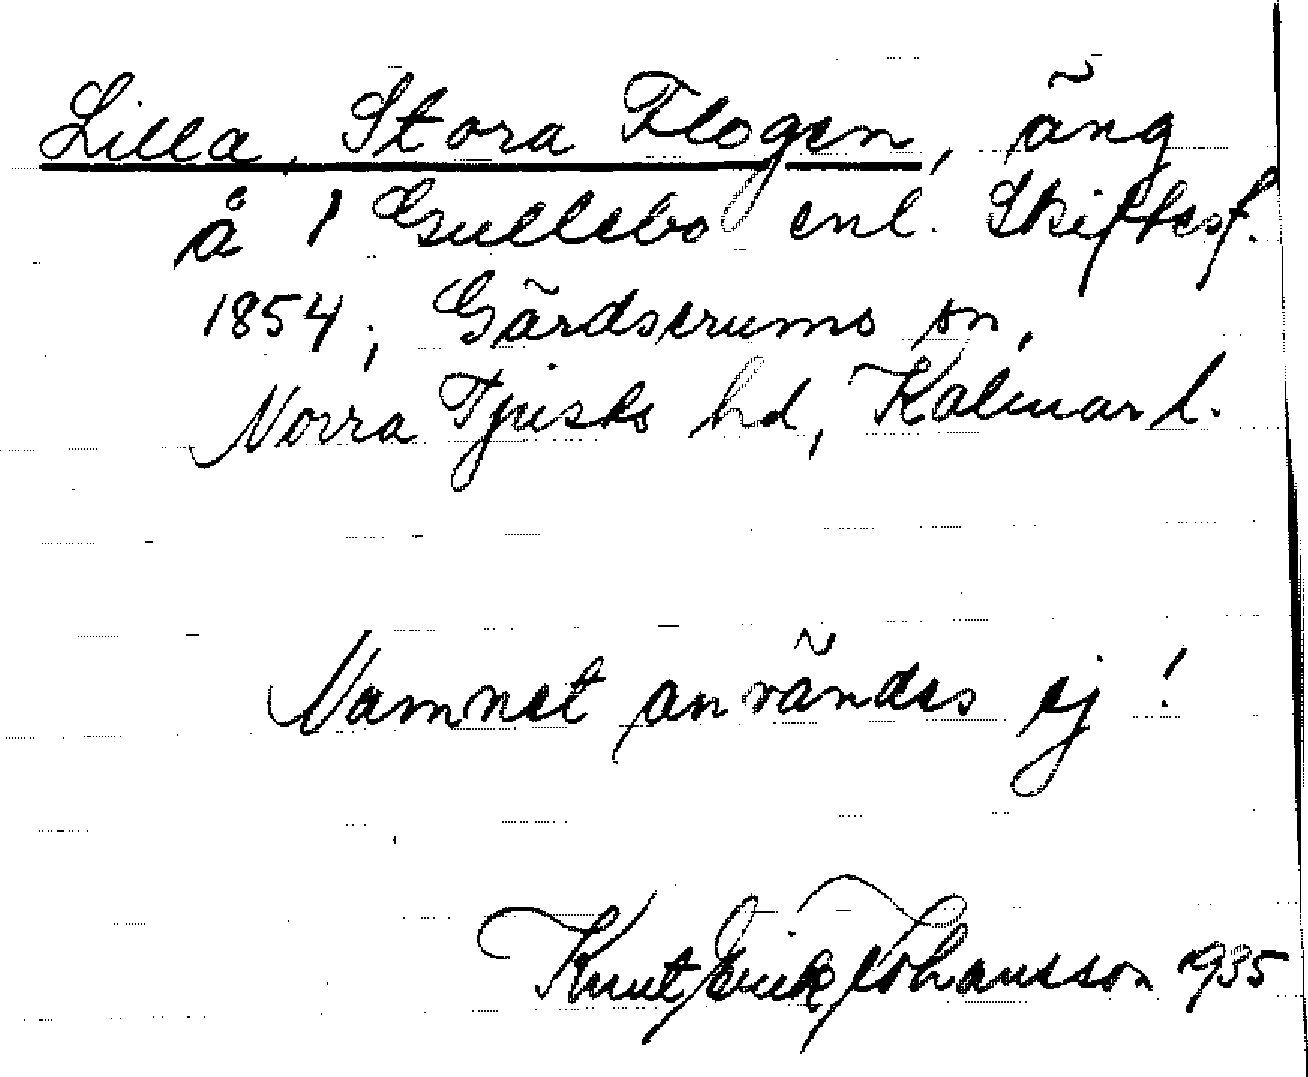 Lilla, Stora Flogen, äng
å 1 Gullebo enl. Skiftesf.
1854; Gärdserums sn,
Norra Tjusts hd, Kalmar l.
Namnet användes ej!
Knut Erik Johansson 1935